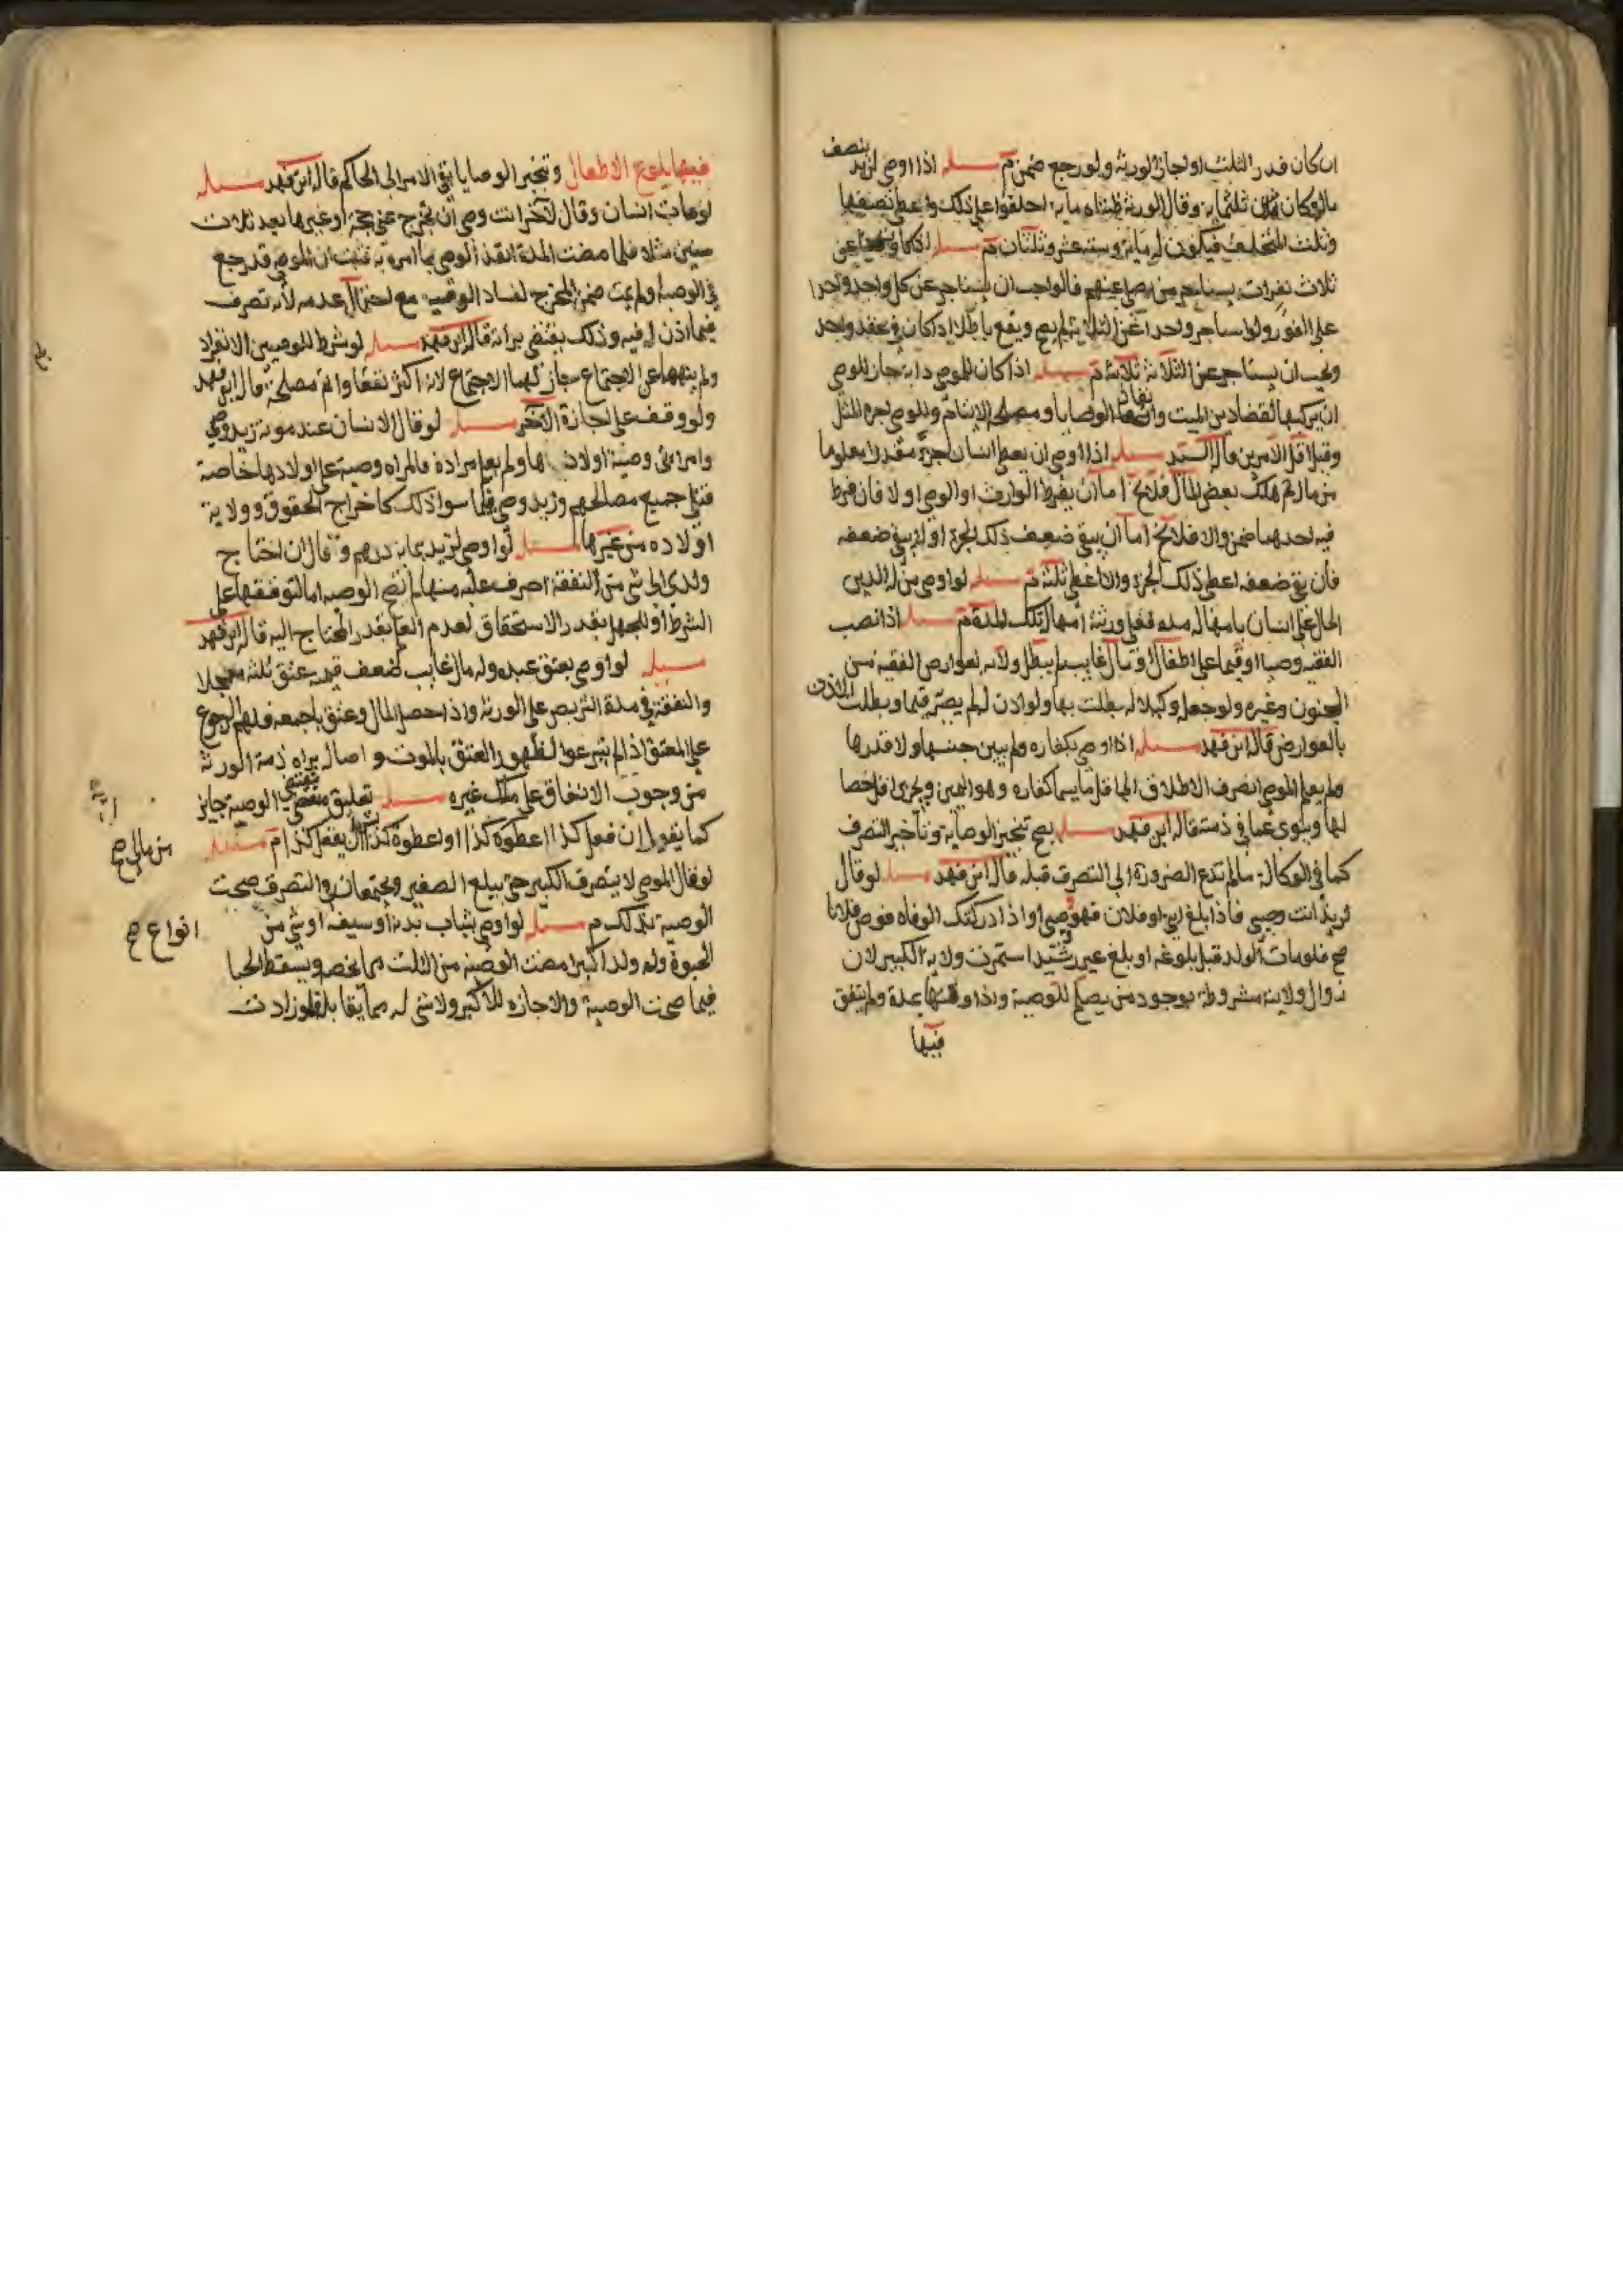 ان كان قدر الثلث او اجاز الورثة ولو رجع ضمن م مسئلة اذا اوصى لزيد بنصف
ماله وكان ثلثمايه وقال الورثة ظنناه مايه احلفوا على ذلك واعطى نصفها
وثلث المتخلف فيكون له مايه وستة عشر وثلثان م مسئلة
ثلاث نفرات يستاجر من عنهم فالواجب ان يستاجر عن كل واحد واحدا
على الفور ولو استاجر واحدا عن الثلاثة لم يصح ويقع باطلا اذ كان في عقد واحد
ويجب ان يستاجر عن الثلاثة ثلاثة م مسئلة اذا كان للموصي دابة جاز للوصي
ان يركبها لقضاء دين الميت وانفاذ الوصايا ومصالح الايتام وللوصي اجرة المثل
وقيل اقل الامرين قال السيد مسئلة اذا اوصى ان يعطى انسان اجزاء مقدرا معلوما
من ماله ثم هلك بعض المال فلا يخ اما ان يفرط الوارث او الوصي او لا فان فرط
فيه احدهما ضمن والا فلا يخ اما ان يبقى ضعف ذلك الجزء او لا يبقى ضعفه
فان بقى ضعفه اعطى ذلك الجزء والا اعطى ثلثه م مسئلة لو اوصى من له الدين
الحال على انسان بامهاله مده فعلى ورثته امهاله تلك المدة م مسئلة اذا نصب
الفقيه وصيا او قيما على اطفال او مال غايب لم يبطل ولايه بعوارض الفقيه من
الجنون وغيره ولو جعله وكيلا له بطلت بها ولو اذن له لم يصر قيما وبطلت الاذن
بالعوارض قاله ابن فهد مسئلة اذا اوصى بكفاره ولم يبين جنسها ولا قدرها
ولم يعلم الموصي انصرف الاطلاق الى اقل ما يسمى كفاره وهو اليمين ويجزى اقل خصا
لها وينوى عما في ذمته قاله ابن فهد مسئلة يصح تنجيز الوصاية وتاخير التصرف
كما في الوكالة مالم تدع الضرورة الى التصرف قبله قال ابن فهد مسئلة لو قال
لزيد انت وصيي فاذا بلغ ابني او فلان فهو وصيي او اذا ادركتك الوفاه فوص فلانا
صح فلو مات الولد قبل بلوغه او بلغ غير رشيد استمرت ولاية الكبير لان
زوال ولايته مشروطة بوجود من يصلح للوصية واذا وقتها عدة ولم يتفق
فيها
فيها بلوغ الاطفال وتنجيز الوصايا بقى الامر الى الحاكم قاله ابن فهد مسئلة
لو مات انسان وقال لآخر انت وصي ان تخرج عني حجة او غيرها بعد ثلاث
سنين مثلا فلما مضت المدة انفذ الوصي بما امره به فثبت ان الموصي قد رجع
في الوصية ولم يمت ضمن المخرج لفساد الوصية مع احتمال عدمه لانه تصرف
فيما اذن له فيه وذلك يقتضي براته قال ابن فهد مسئلة لو شرط للوصيين الانفراد
ولم ينههما عن الاجتماع جاز لهما الاجتماع لانه اكثر نفعا واتم مصلحة قال ابن فهد
ولو وقف على اجازة الآخر مسئلة لو قال الانسان عند موته زيد وصي
وامراتي وصية اولادها ولم يعلم مراده فالمراه وصية على اولادها خاصة
فتلي جميع مصالحهم وزيد وصي فيما سوا ذلك كاخراج الحقوق وولاية
اولاده من غيرها مسئلة لو اوصى لزيد بمايه درهم وقال ان احتاج
ولدي الى شى من النفقة اصرف عليه منها لم تصح الوصيه اما لتوقفها على
الشرط او للجهل بقدر الاستحقاق لعدم العلم بقدر المحتاج اليه قال ابن فهد
مسئلة لو اوصى بعتق عبده وله مال غايب ضعف قيمته عتق ثلثه معجلا
والنفقة في مدة التربص على الورثة واذا حصل المال وعتق باجمعه فلهم الرجوع
على المعتق اذا لم يتبرعوا لظهور العتق بالموت واصالة براه ذمة الورثة
من وجوب الانفاق على ملك غيره مسئلة تعليق مقتضى الوصية جايز
كما يقول ان فعل كذا اعطوه كذا او اعطوه كذا ان يفعل كذا م مسئلة
لو قال الموصي لا يتصرف الكبير حتى يبلغ الصغير ويجتمعان في التصرف صحت
الوصية بذلك م مسئلة لو اوصى بثياب بدنه او سيفه او شى من
الحبوة وله ولد اكبر امضت الوصية من الثلث مما يخص ويسقط الحبا
فيما صحت الوصية والاجازه للاكبر ولا شى له مما يقابله فلو زادت
من مالي صح
انواع صح